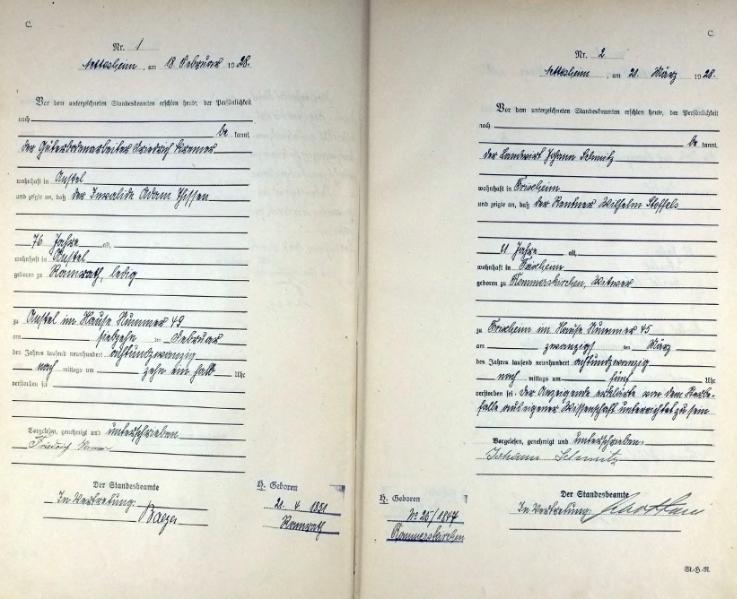 C.
Nr. 1
Nettesheim, am 18. Februar 1928.
Vor dem unterzeichneten Standesbeamten erschien heute, der Persönlichkeit
nach
be kannt,
der Güterbodenarbeiter Friedrich Kremer
wohnhaft in Anstel
und zeigte an, daß der Invalide Adam Thissen
76 Jahre alt,
wohnhaft in Anstel
geboren zu Ramrath, ledig
zu Anstel im Hause Nummer 49
am siebzehn ten Februar
des Jahres tausend neunhundert achtundzwanzig
nach mittags um zehn ein halb Uhr
verstorben sei
Vorgelesen, genehmigt und unterschrieben
Friedrich
Der Standesbeamte
In Vertretung:
H. Geboren
21. 4 1851
Ramrath
C.
Nr. 2
Nettesheim, am 21. März 1928.
Vor dem unterzeichneten Standesbeamten erschien heute, der Persönlichkeit
nach
be kannt,
der Landwirt Johann Schmitz
wohnhaft in Frixheim
und zeigte an, daß der Rentner Wilhelm Stoffels
81 Jahre alt,
wohnhaft in Frixheim
geboren zu Rommerskirchen, Witwer
zu Frixheim im Hause Nummer 45
am zwanzigst en März
des Jahres tausend neunhundert achtundzwanzig
nach mittags um fünf Uhr
verstorben sei: der Anzeigende erklärte von dem Sterbe-
falle aus eigener Wissenschaft unterrichtet zu sein
Vorgelesen, genehmigt und unterschrieben.
Johann Schmitz
Der Standesbeamte
In Vertretung:
H. Geboren
Nr 25/1847
Rommerskirchen
St.-H.-R.